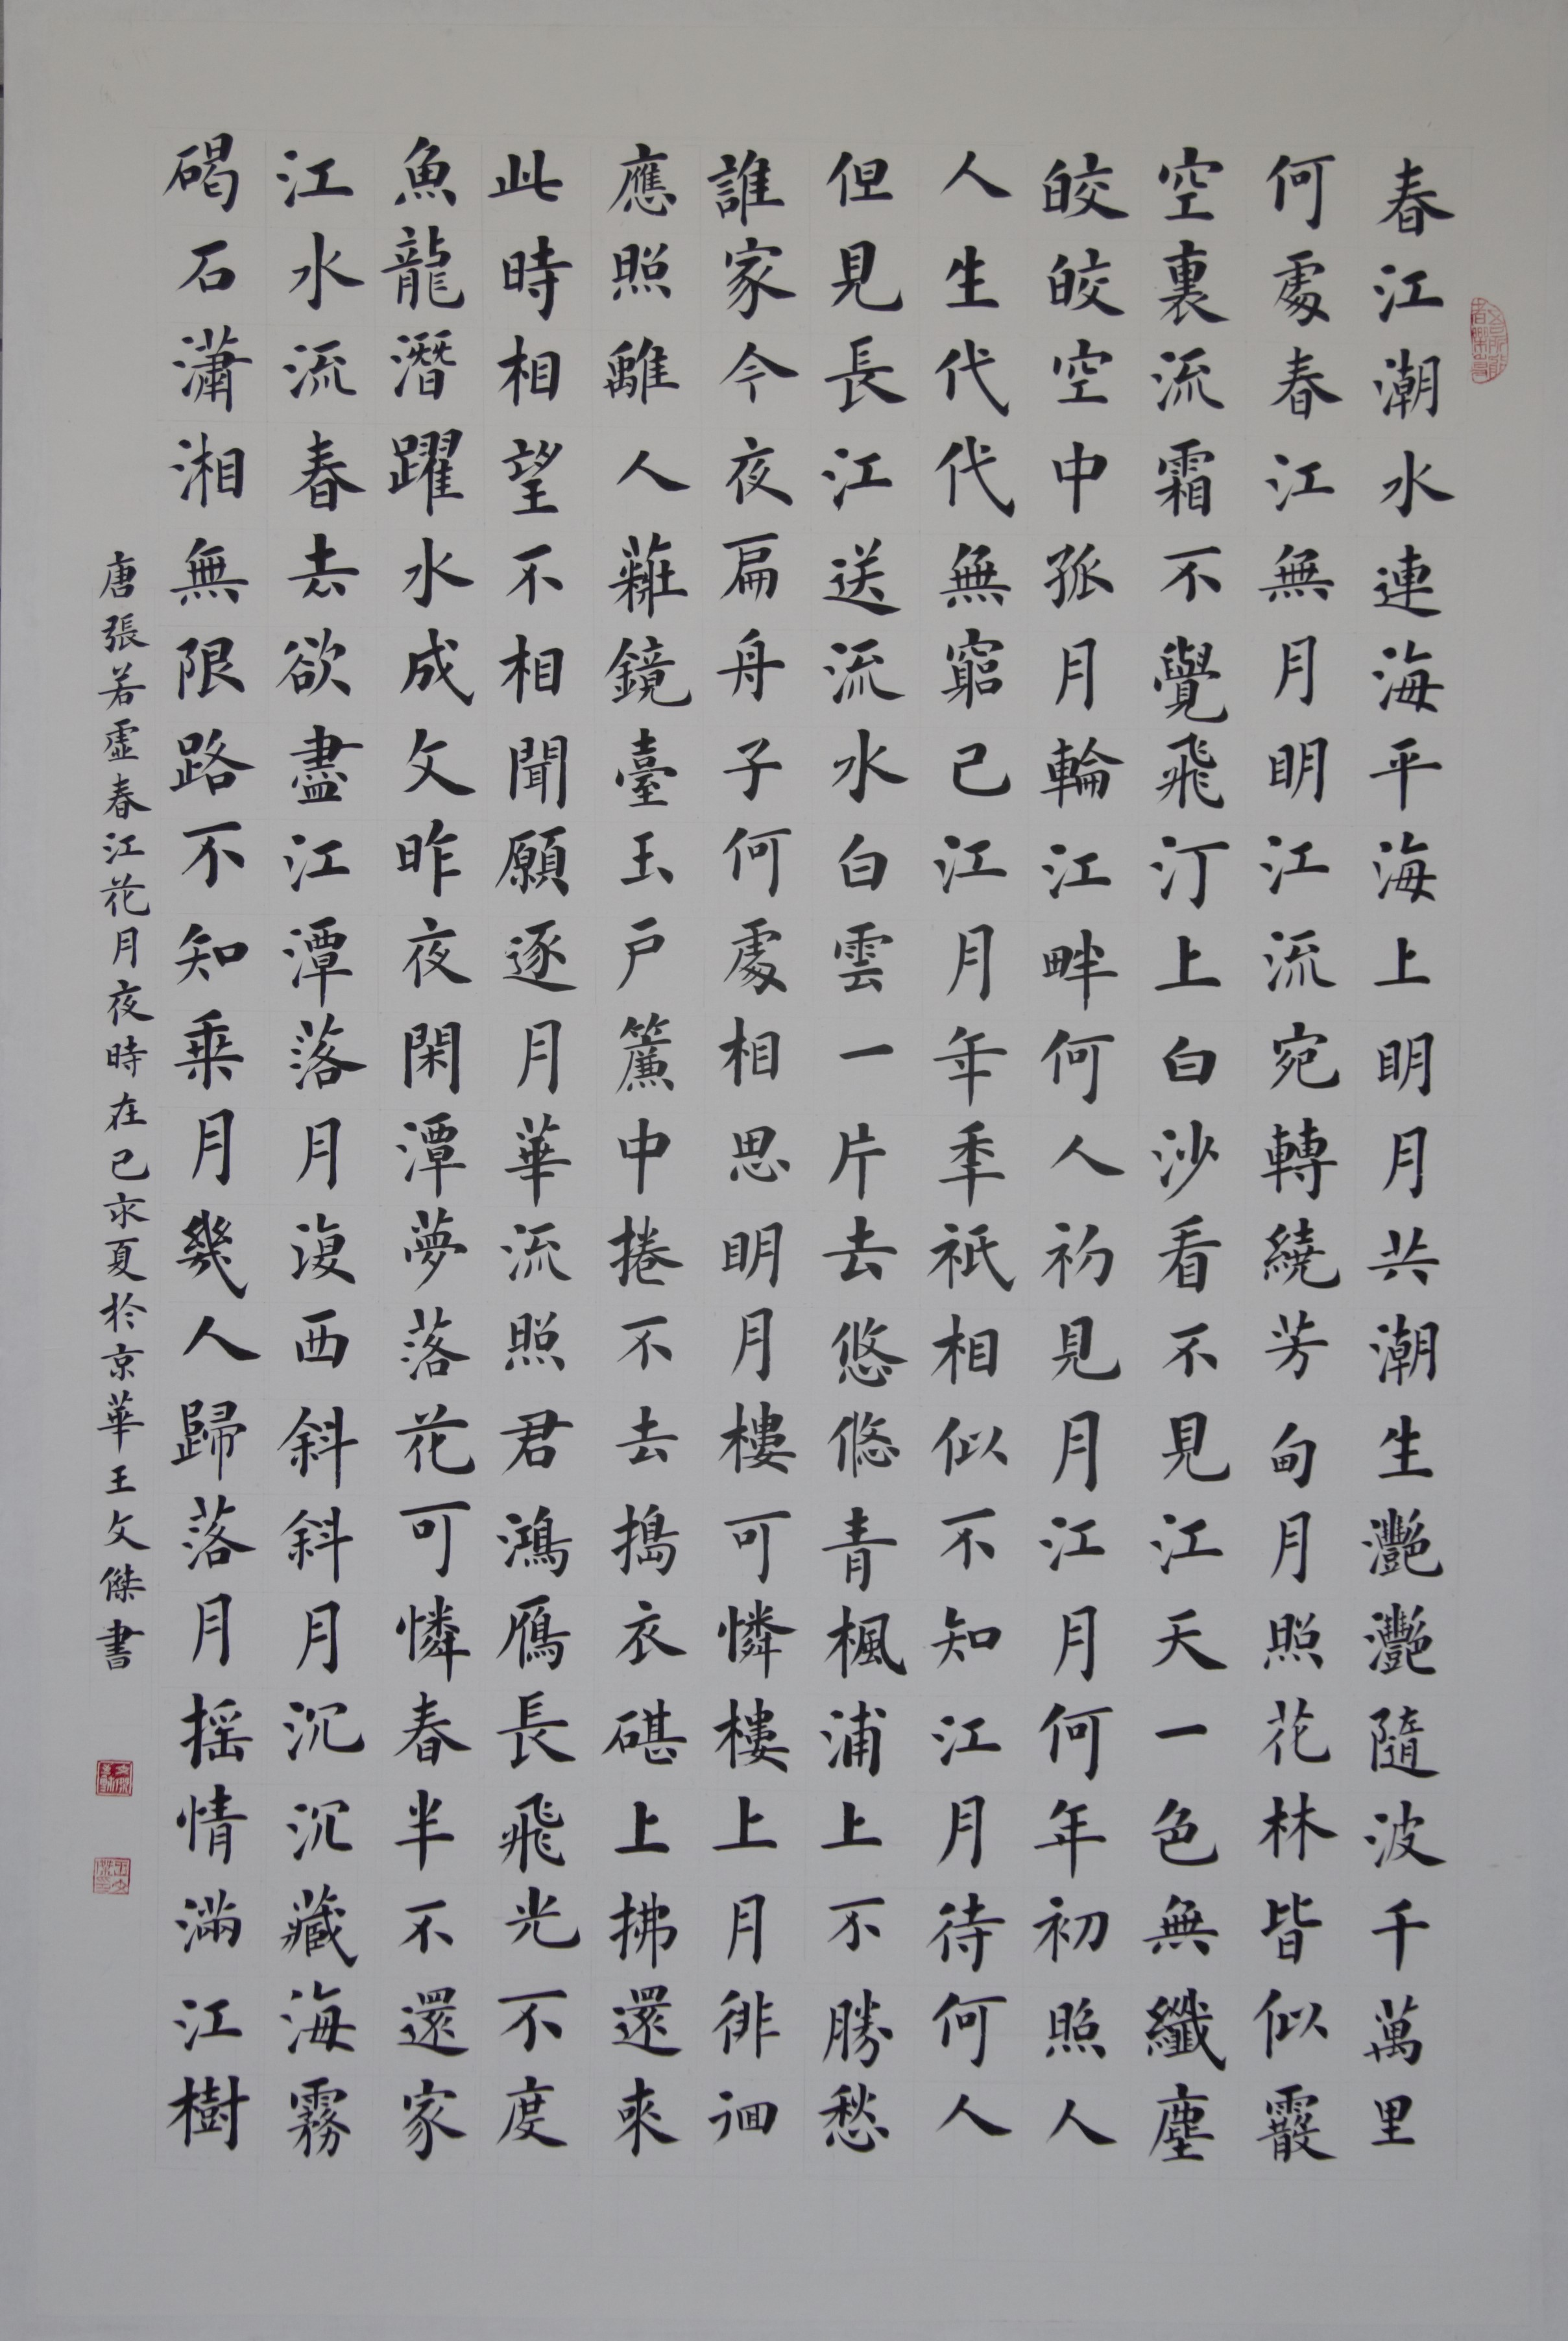 春江潮水連海平海上明月共潮生灧灧隨波千萬里
何處春江無月明江流宛轉繞芳甸月照花林皆似霰
空裏流霜不覺飛汀上白沙看不見江天一色無纖塵
皎皎空中孤月輪江畔何人初見月江月何年初照人
人生代代無窮已江月年年祇相似不知江月待何人
但見長江送流水白雲一片去悠悠青楓浦上不勝愁
誰家今夜扁舟子何處相思明月樓可憐樓上月徘徊
應照離人妝鏡臺玉戶簾中捲不去搗衣碪上拂還來
此時相望不相聞願逐月華流照君鴻雁長飛光不度
魚龍潛躍水成文昨夜閑潭夢落花可憐春半不還家
江水流春去欲盡江潭落月復西斜斜月沉沉藏海霧
碣石瀟湘無限路不知乘月幾人歸落月摇情滿江樹
唐張若虛春江花月夜時在己亥夏於京華王文傑書